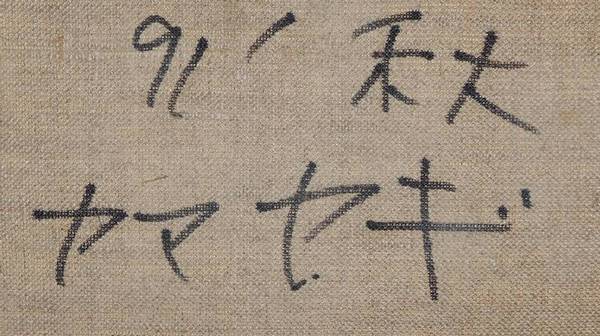 91' 秋
ヤマセギ